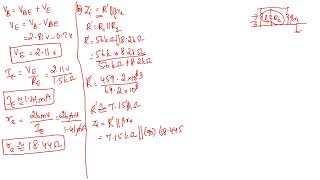 V_B = V_BE + V_E
V_E = V_B - V_BE
= 2.81V - 0.7V
V_E = 2.11V
I_E = V_E / R_E = 2.11V / 1.5kΩ
I_E ≅ 1.41mA
r_e = 26mV / I_E = 26mV / 1.41mA
r_e ≅ 18.44Ω
Z_i = R' || βr_e
R' = R_1 || R_2
R' = 56k || 8.2kΩ
= 56kΩ × 8.2kΩ / 56kΩ + 8.2kΩ
R' = 459.2 × 10^3 / 64.2 × 10^3
R' ≅ 7.15kΩ
Z_i = R' || βr_e
= 7.15kΩ || (90) (18.44Ω